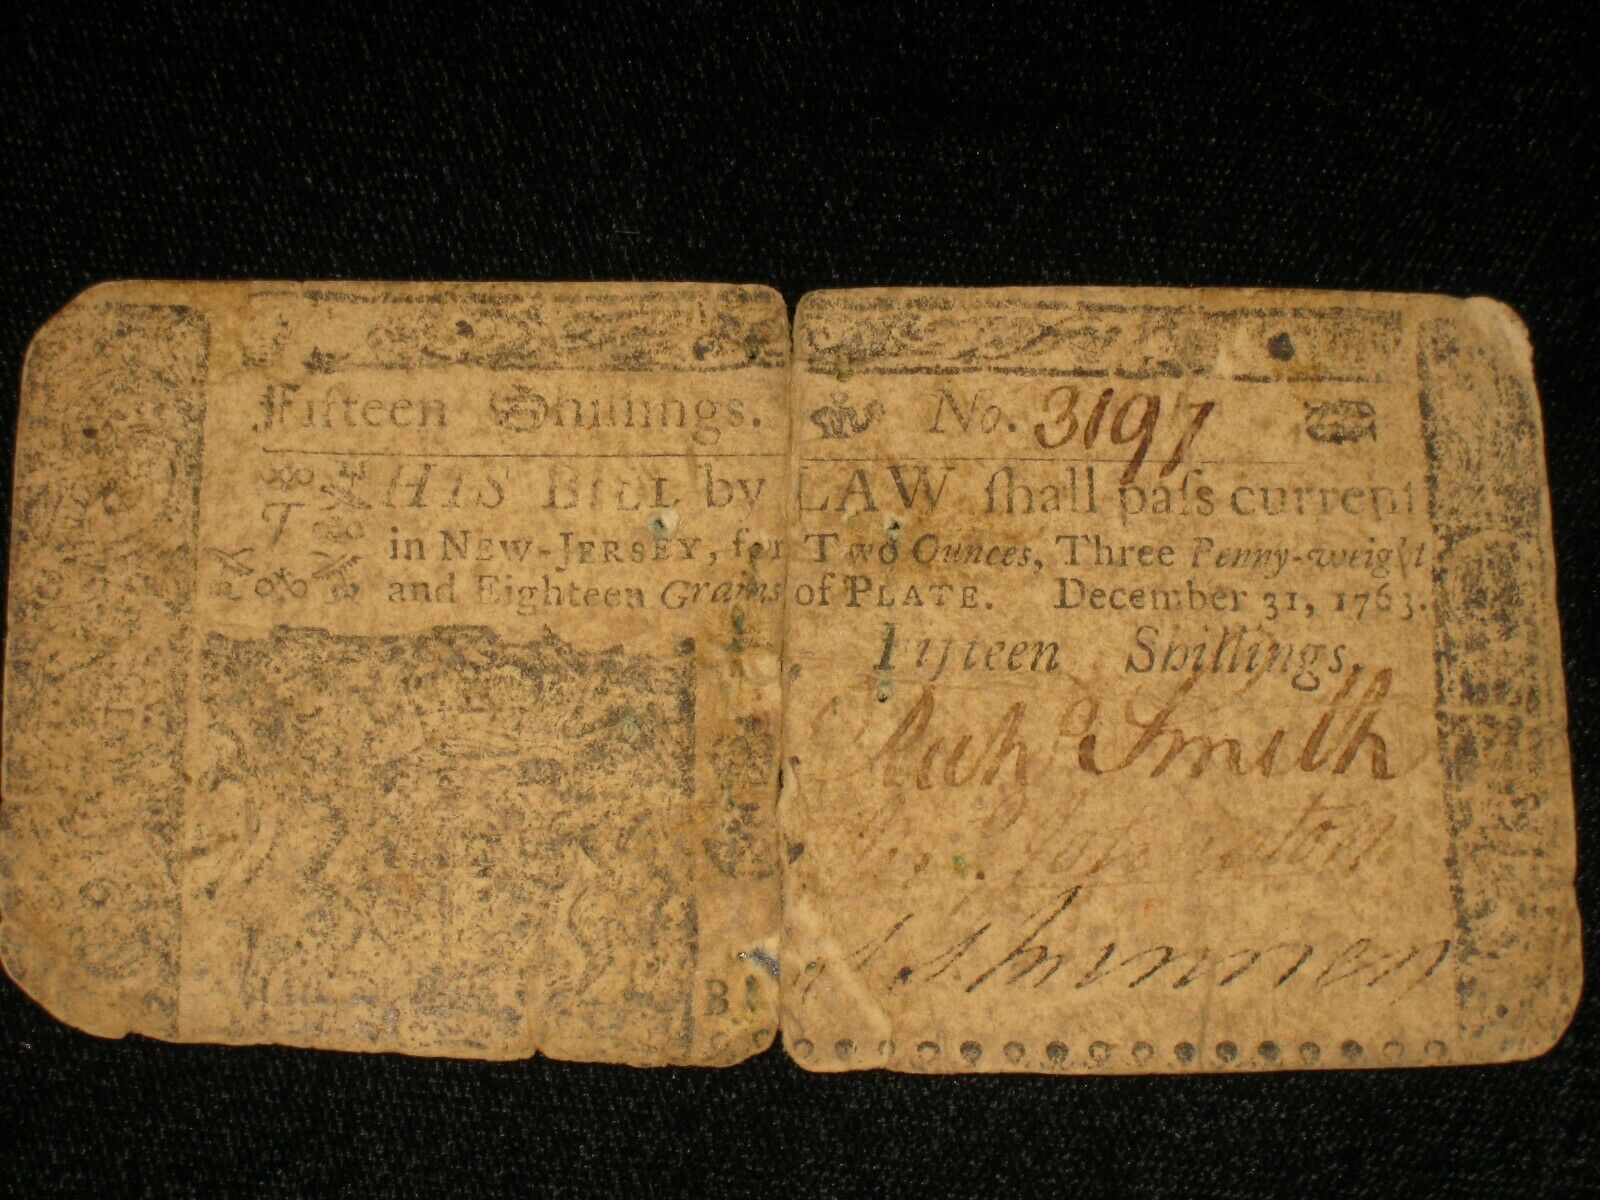 Fifteen Shillings. No. 3197
THIS BILL by LAW ſhall paſs current
in NEW-JERSEY, for Two Ounces, Three Penny-weight
and Eighteen Grains of PLATE. December 31, 1763.
Fifteen Shillings.
Richd Smith
Jno Johnston
B